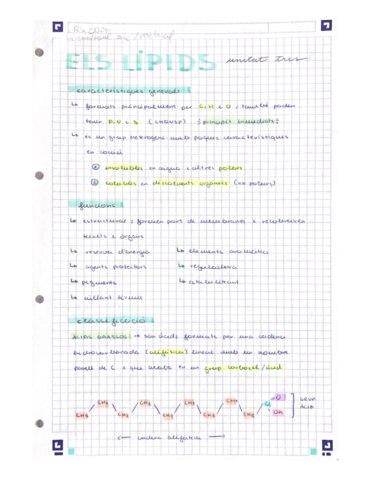 ELS LÍPIDS unitat tres
característiques generals:
↳ formats principalment per C, H i O, també poden
tenir P, N i S (CHONSP)
↳ és un grup heterogeni amb poques característiques
en comú
① insolubles en aigua i altres polars
② solubles en dissolvents orgànics (no polars)
funcions:
↳ estructural: formen part de membranes i recobreixen
teixits i òrgans
↳ reserva d'energia ↳
↳ agents protectors ↳ reguladora
↳ pigments ↳
↳ aïllant tèrmic
classificació:
ÀCIDS GRASSOS: → són àcids formats per una cadena
hidrocarbonada (alifàtica) lineal amb un nombre
parell de C i que acaba en un grup carboxil/àcid
CH3 CH2 CH2 CH2 CH2 CH2 CH2 CH2 C O OH
GRUP
ÀCID
← cadena alifàtica →